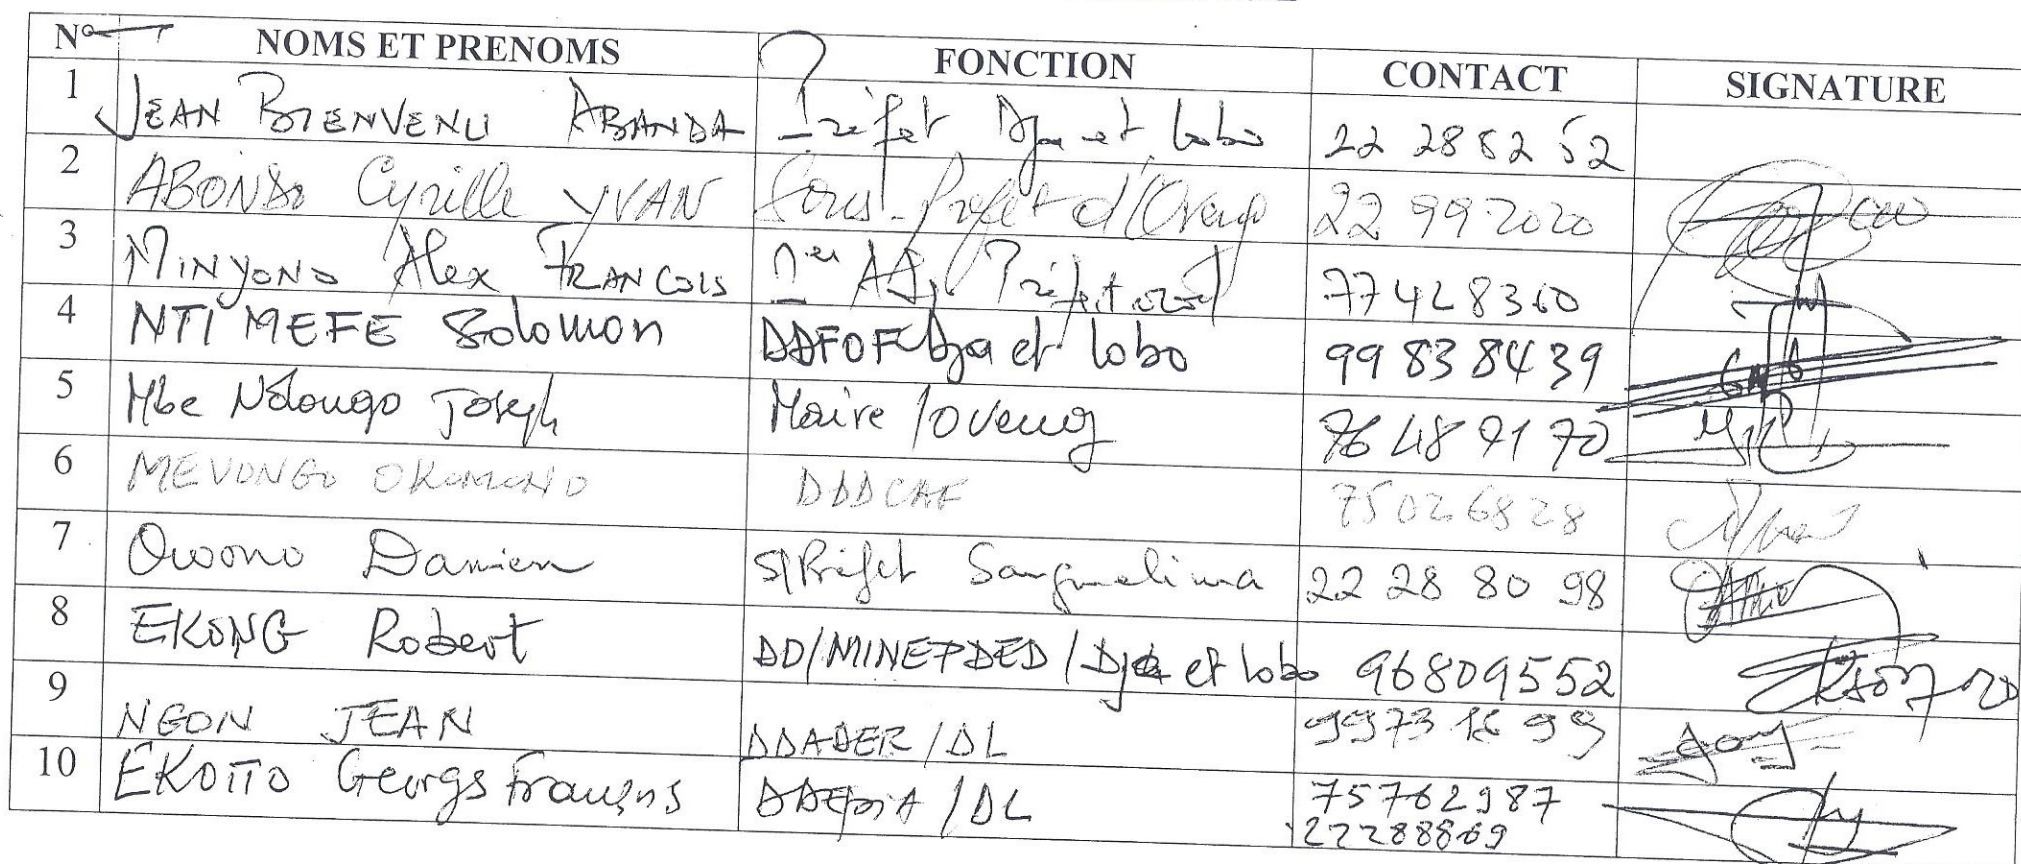 N° NOMS ET PRENOMS FONCTION CONTACT SIGNATURE
1 JEAN BIENVENU ABANDA Préfet Dja et lobo 22 28 82 52
2 ABONDO Cyrille YVAN Sous-Préfet d'Oveng 22 99 20 20
3 MINYONO Alex FRANCOIS 1er Adj. Préfectoral 77428360
4 NTI MEFE Solomon DDFOF Dja et lobo 99 83 84 39
5 Mbe Ndongo Joseph Maire / Oveng 76 48 91 70
6 MEVONGO OKOMONO DDDCAF 75026828
7 Owono Damien S/Préfet Sangmelima 22 28 80 98
8 EKONG Robert DD/MINEPDED / Dja et lobo 96809552
9 NGON JEAN DDADER / DL 9973 16 99
10 EKOTTO Georgs François / DL 75762987
22288869